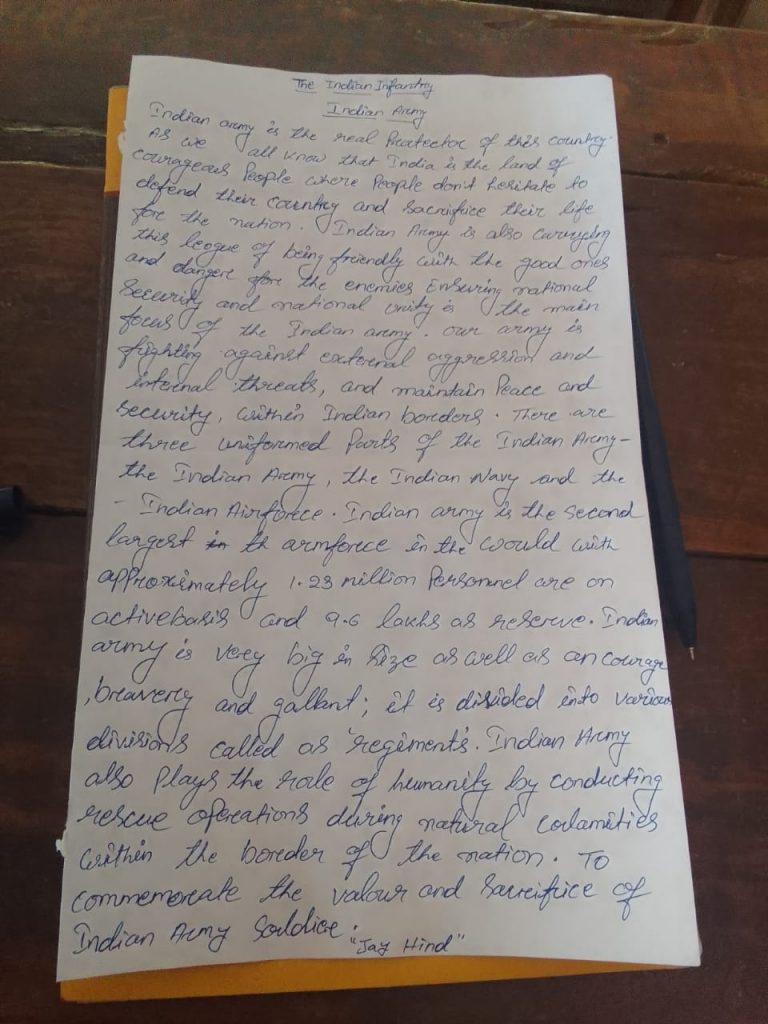 The Indian Infantry
Indian Army
Indian army is the real Protector of this country.
As we all know that India is the land of
courageous People where People don't hesitate to
defend their country and sacrifice their life
for the nation. Indian Army is also carrying
this league of being friendly with the good ones
and danger for the enemies Ensuring national
security and national unity is the main
focus of the Indian army. our army is
fighting against external aggression and
internal threats, and maintain Peace and
security, within Indian borders. There are
three uniformed Parts of the Indian Army-
the Indian Army, the Indian Navy and the
- Indian Airforce. Indian army is the second
largest in th armforce in the would with
approximately 1.23 million Personnel are on
activebasis and 9.6 lakhs as reserve. Indian
army is very big in size as well as an courage
,bravery and gallant; it is divided into various
divisions called as 'regiments'. Indian Army
also Plays the role of humanity by conducting
rescue operations during natural calamities
within the border of the nation. To
commemorate the valour and sacrifice of
Indian Army Soldier.
"Jay Hind"